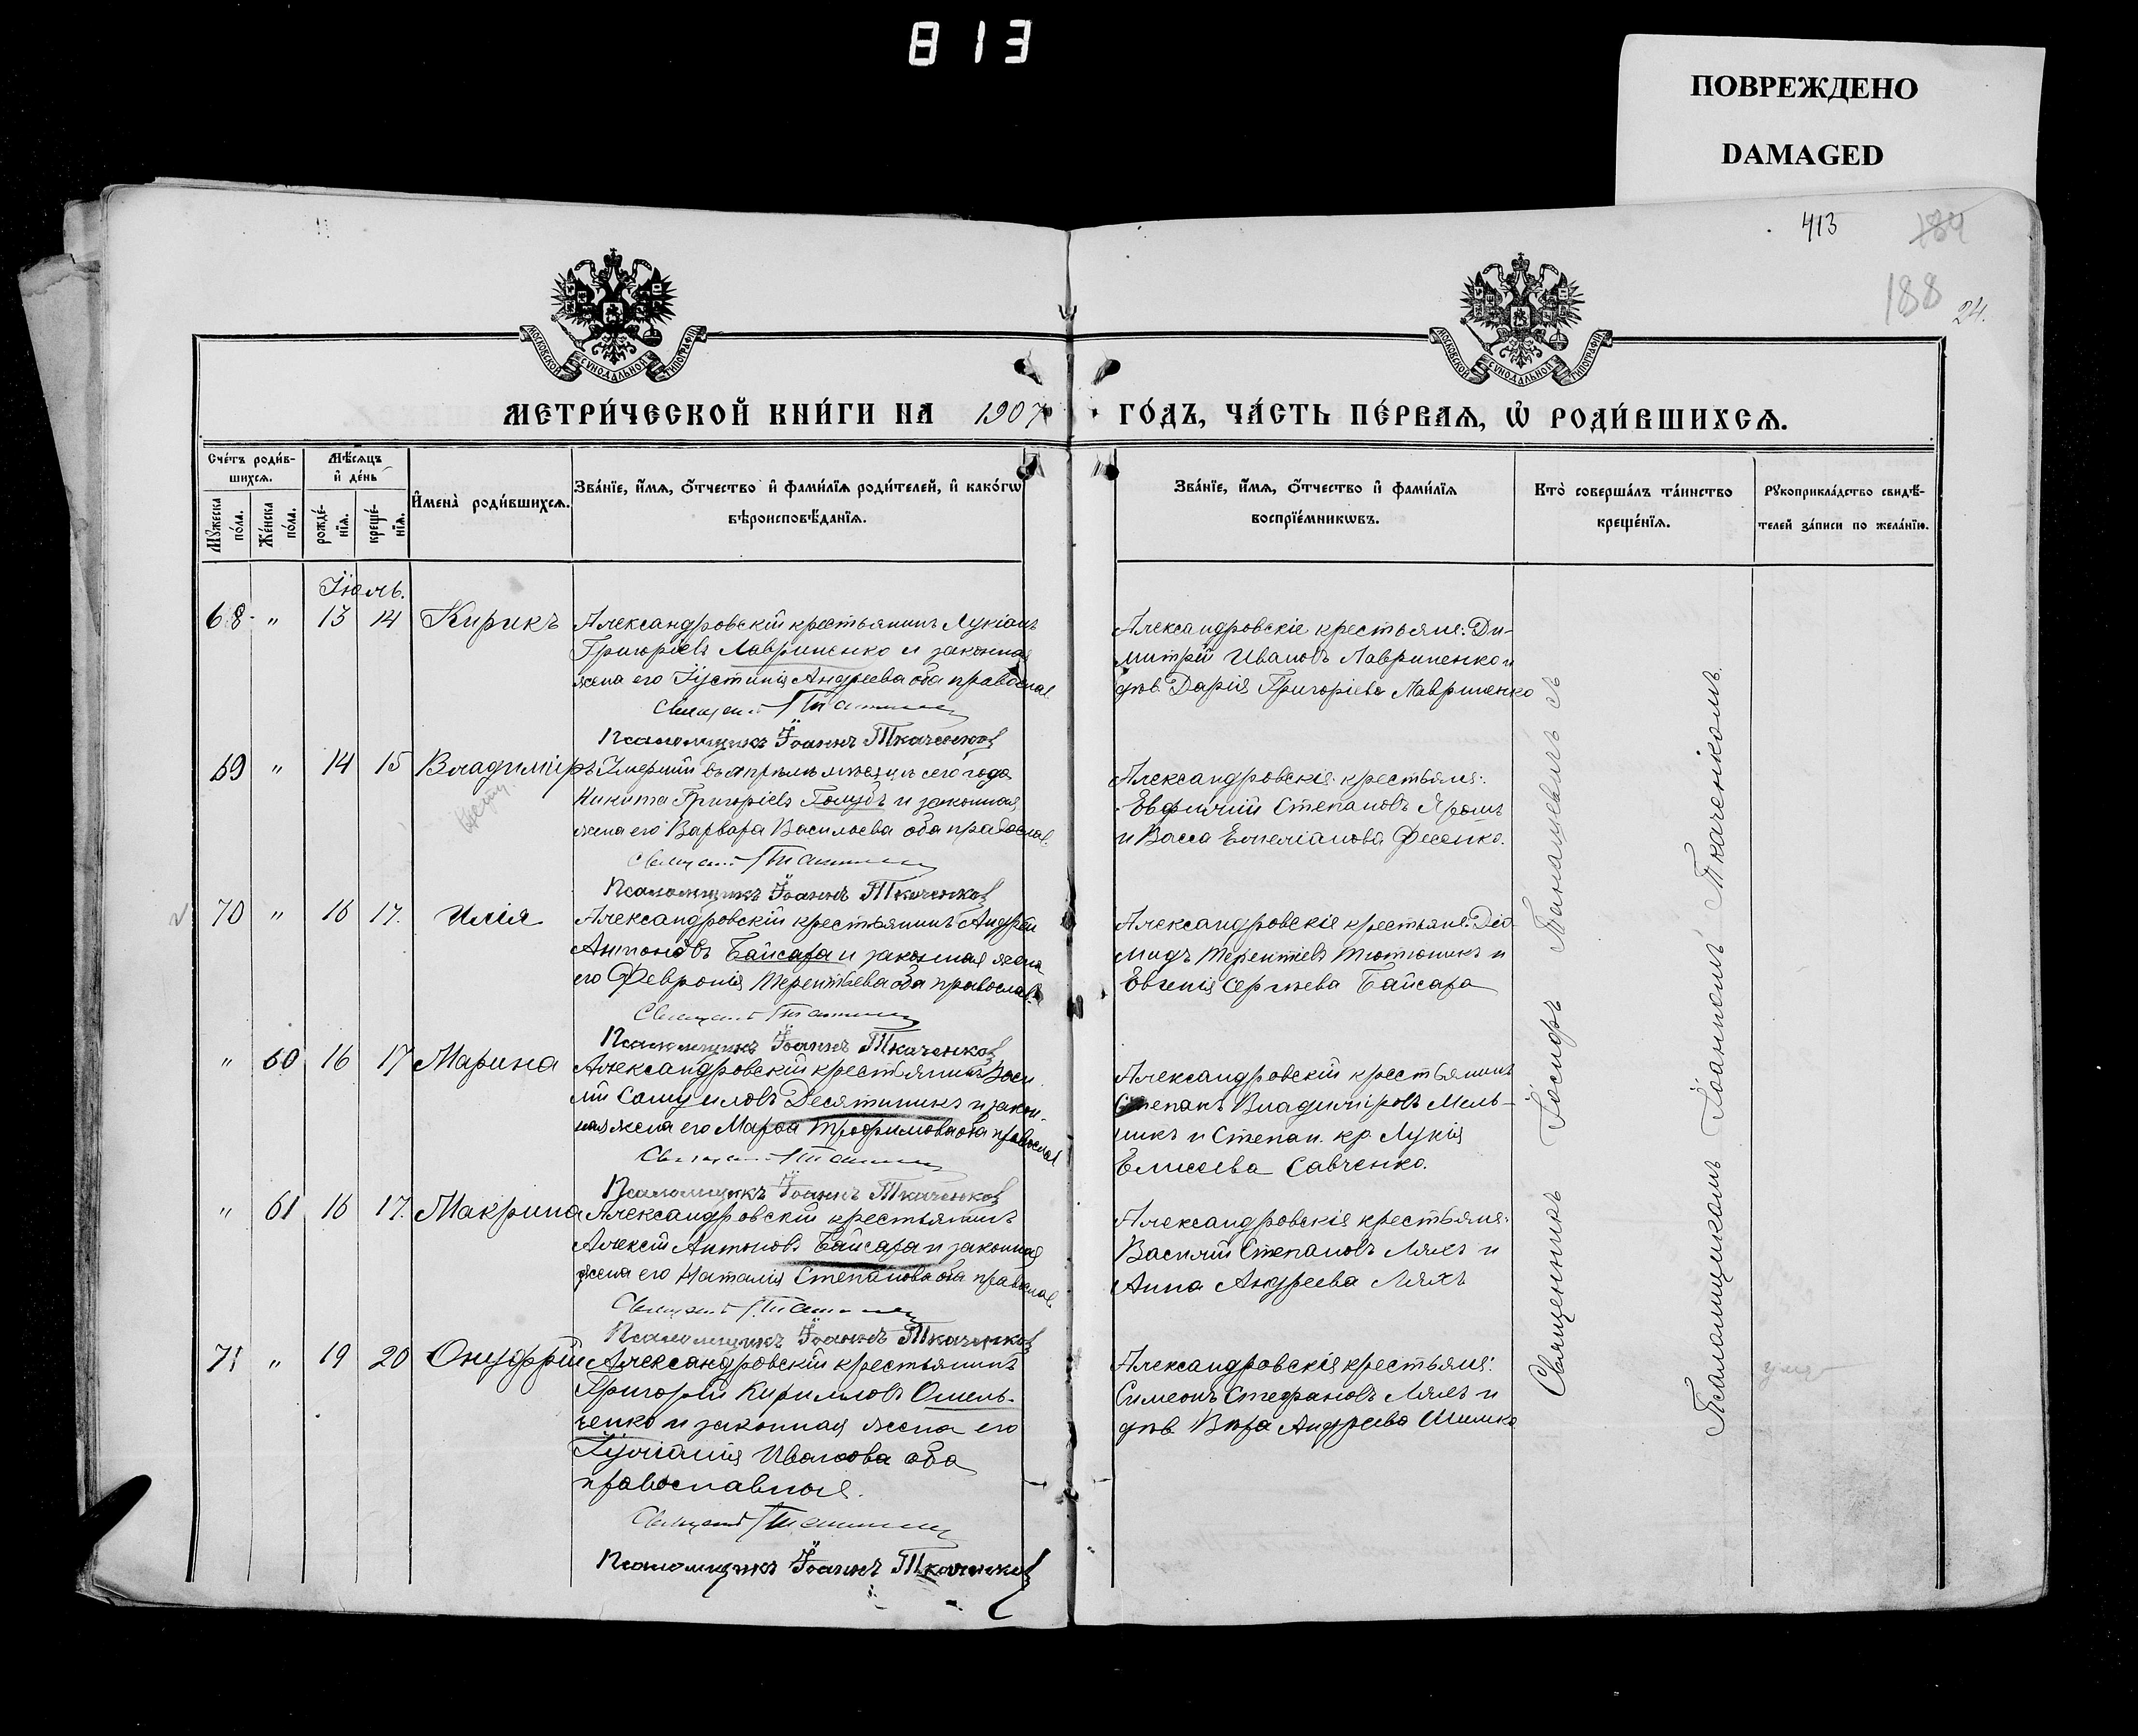 813
ПОВРЕЖДЕНО
DAMAGED
413
184
188
24.
МОСКОВСКОЙ СѴНОДАЛЬНОЙ ТИПОГРАФІИ
МОСКОВСКОЙ СѴНОДАЛЬНОЙ ТИПОГРАФІИ
МЕТРИ́ЧЕСКОЙ КНИ́ГИ НА 1907
ГО́ДЪ, ЧА́СТЬ ПЕ́РВАѦ, Ѡ҆ РОДИ́ВШИХСѦ.
Сче́тъ роди́в-
шихсѧ.
Мѣ́сѧцъ
и҆ де́нь
Мꙋ́жеска
по́ла.
Же́нска
по́ла.
рожде́-
нїѧ.
креще́-
нїѧ.
И҆мена̀ роди́вшихсѧ.
Зва́нїе, и҆́мѧ, ѻ҆́тчество и҆ фами́лїѧ роди́телей, и҆ како́гѡ
вѣроисповѣ́данїѧ.
Зва́нїе, и҆́мѧ, ѻ҆́тчество и҆ фами́лїѧ
воспрїе́мникѡвъ.
Кто̀ соверша́лъ та́инство
креще́нїѧ.
Рꙋкоприкла́дство свидѣ́-
телей за́писи по жела́нїю.
Іюль.
68 " 13 14 Кирикъ
Александровскій крестьянинъ Лукіанъ
Григоріевъ Лавриненко и законная
жена его Іустинія Андреева оба православ.
Псаломщикъ Іоаннъ Ткаченковъ
Александровскіе крестьяне: Ди-
митрій Ивановъ Лавриненко и
дѣв. Дарія Григоріева Лавриненко
69 " 14 15 Владиміръ
Умершій въ апрѣлѣ мѣсяцѣ сего года
Никита Григоріевъ Голубъ и законная
жена его Варвара Васильева оба православ.
Псаломщикъ Іоаннъ Ткаченковъ
Александровскіе крестьяне:
Евфимій Степановъ Ярошъ
и Васса Емеліанова Фесенко.
70 " 16 17. Илія
Александровскій крестьянинъ Андрей
Антоновъ Байсара и законная жена
его Февронія Терентьева оба православ.
Псаломщикъ Іоаннъ Ткаченковъ
Александровскіе крестьяне: Діо-
мидъ Терентіевъ Тютюникъ и
Евгенія Сергѣева Байсара
" 60 16 17 Марина
Александровскій крестьянинъ Васи-
лій Самуиловъ Десятникъ и закон-
ная жена его Марфа Трофимова оба православ
Псаломщикъ Іоаннъ Ткаченковъ
Александровскій крестьянинъ
Степанъ Владиміровъ Мель-
никъ и Степан. кр. Лукія
Елисеева Савченко.
" 61 16 17. Макрина
Александровскій крестьянинъ
Алексій Антоновъ Байсара и законная
жена его Наталія Степанова оба православ.
Псаломщикъ Іоаннъ Ткаченковъ
Александровскіе крестьяне:
Василій Степановъ Ляхъ и
Анна Андреева Ляхъ
71 " 19 20 Онуфрій
Александровскій крестьянинъ
Григорій Кирилловъ Омель-
ченко и законная жена его
Іуліанія Иванова оба
православные.
Псаломщикъ Іоаннъ Ткаченковъ
Александровскіе крестьяне:
Симеонъ Стефановъ Ляхъ и
дѣв. Вѣра Андреева Шишко
Священникъ Іосифъ Танашевичъ съ
Псаломщикомъ Іоанномъ Ткаченковомъ.